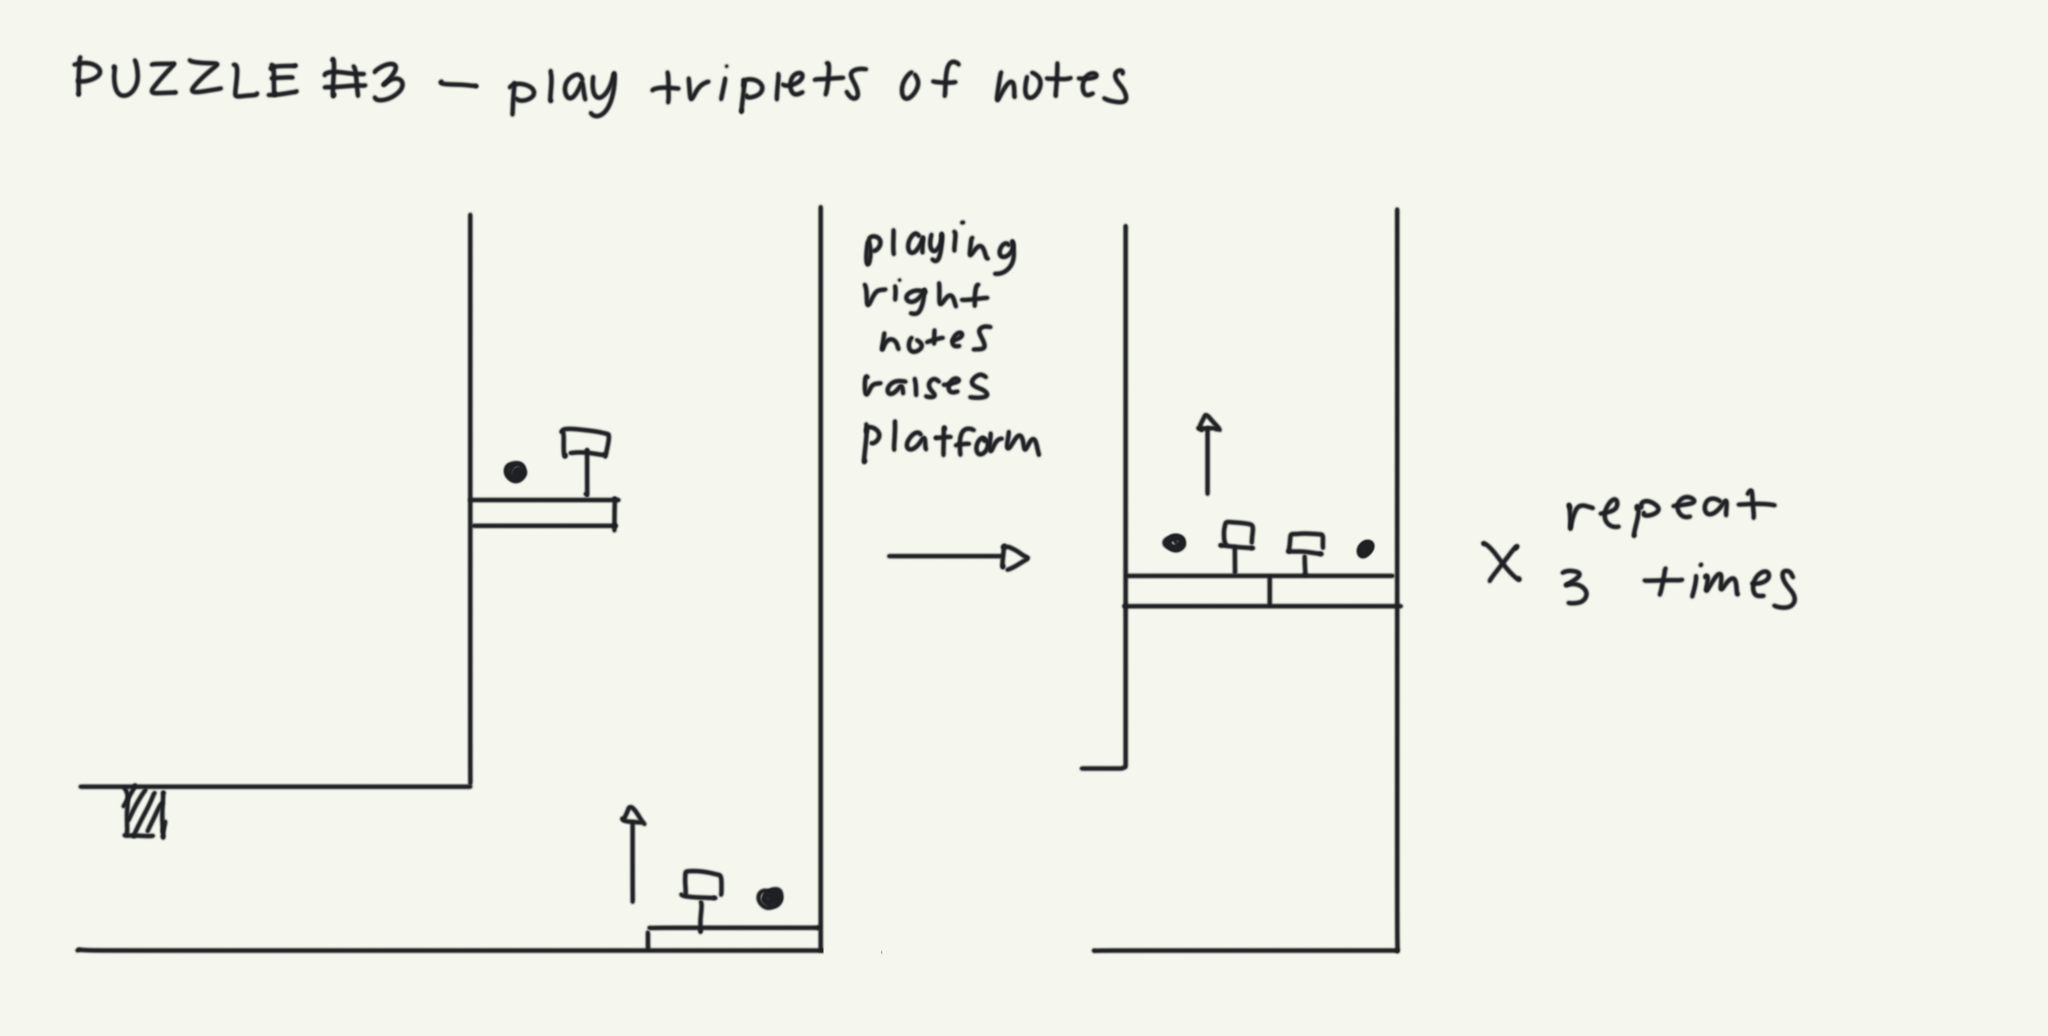 PUZZLE #3 - play triplets of notes
playing
right
notes
raises
platform
X repeat
3 times